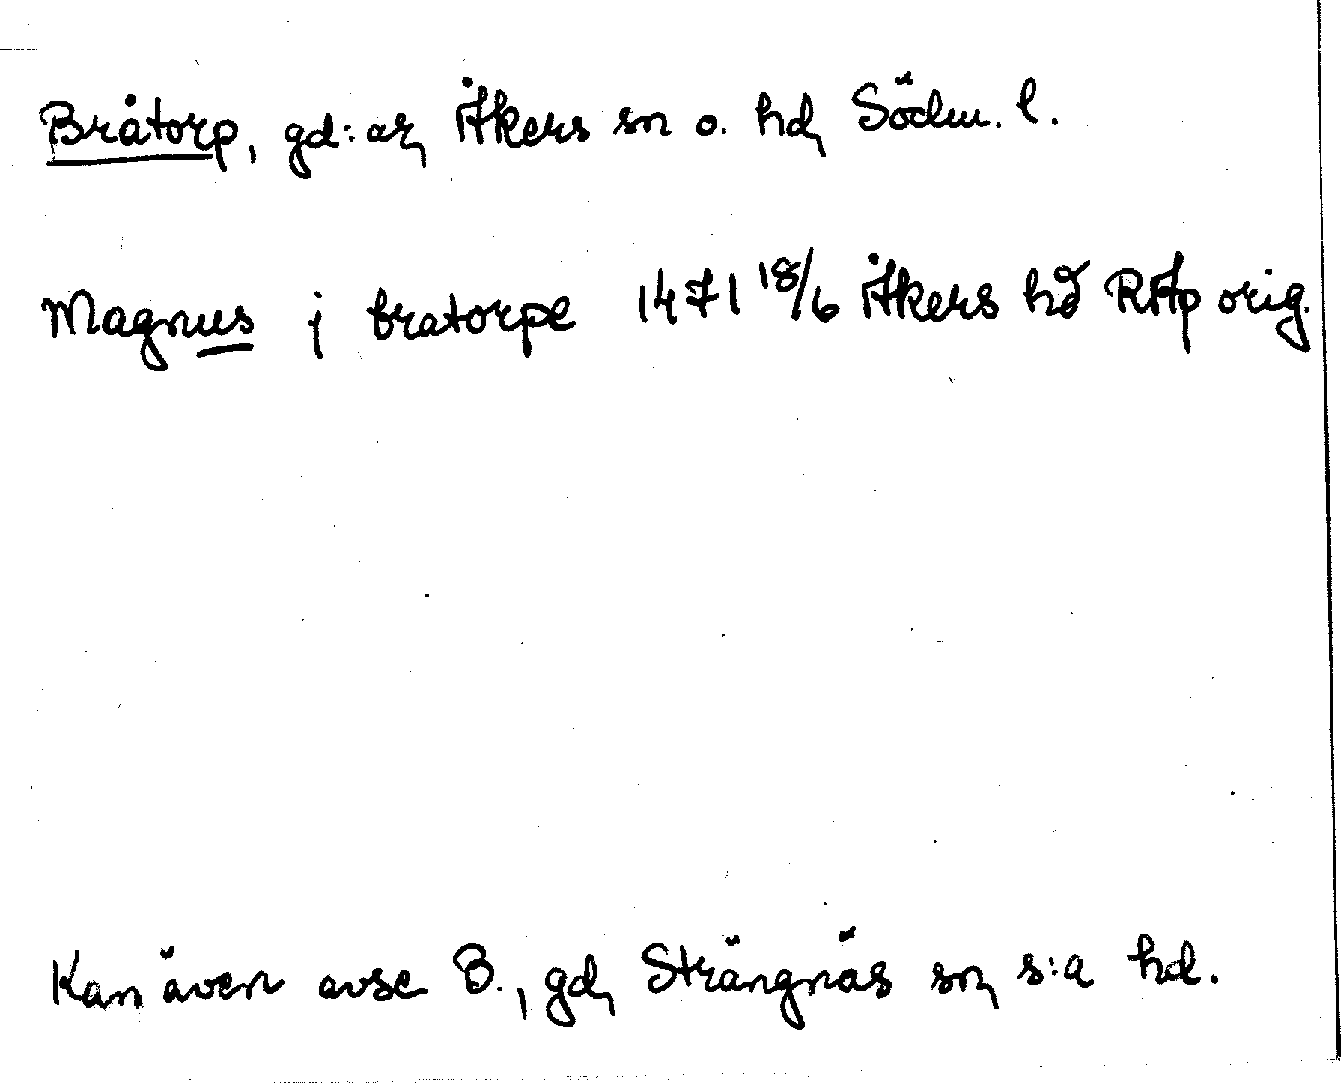 Bråtorp, gd:ar, Åkers sn o. hd, Södm. l.
Magnus j bratorpe 1471 18/6 Åkers hd RAp orig.
Kan även avse B., gd, Strängnäs sn, s:a hd.